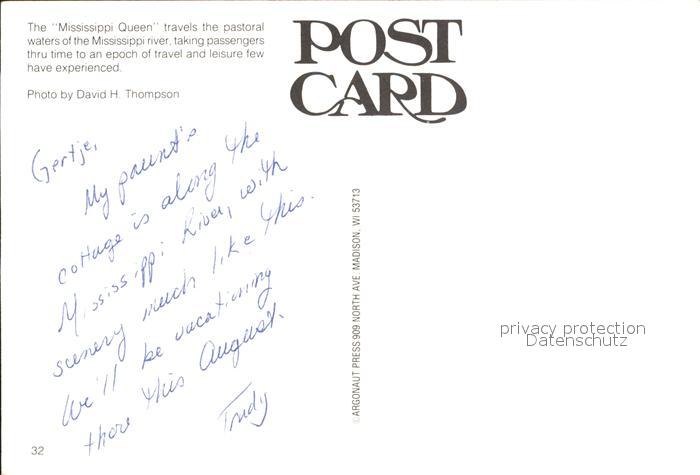 The "Mississippi Queen" travels the pastoral
waters of the Mississippi river, taking passengers
thru time to an epoch of travel and leisure few
have experienced.
Photo by David H. Thompson
POST
CARD
Gertje,
My paunt's
cottage is along the
Mississippi River, with
scenery much like this.
We'll be vacationing
there this August.
Trudy
32
© ARGONAUT PRESS 909 NORTH AVE MADISON, WI 53713
privacy protection
Datenschutz